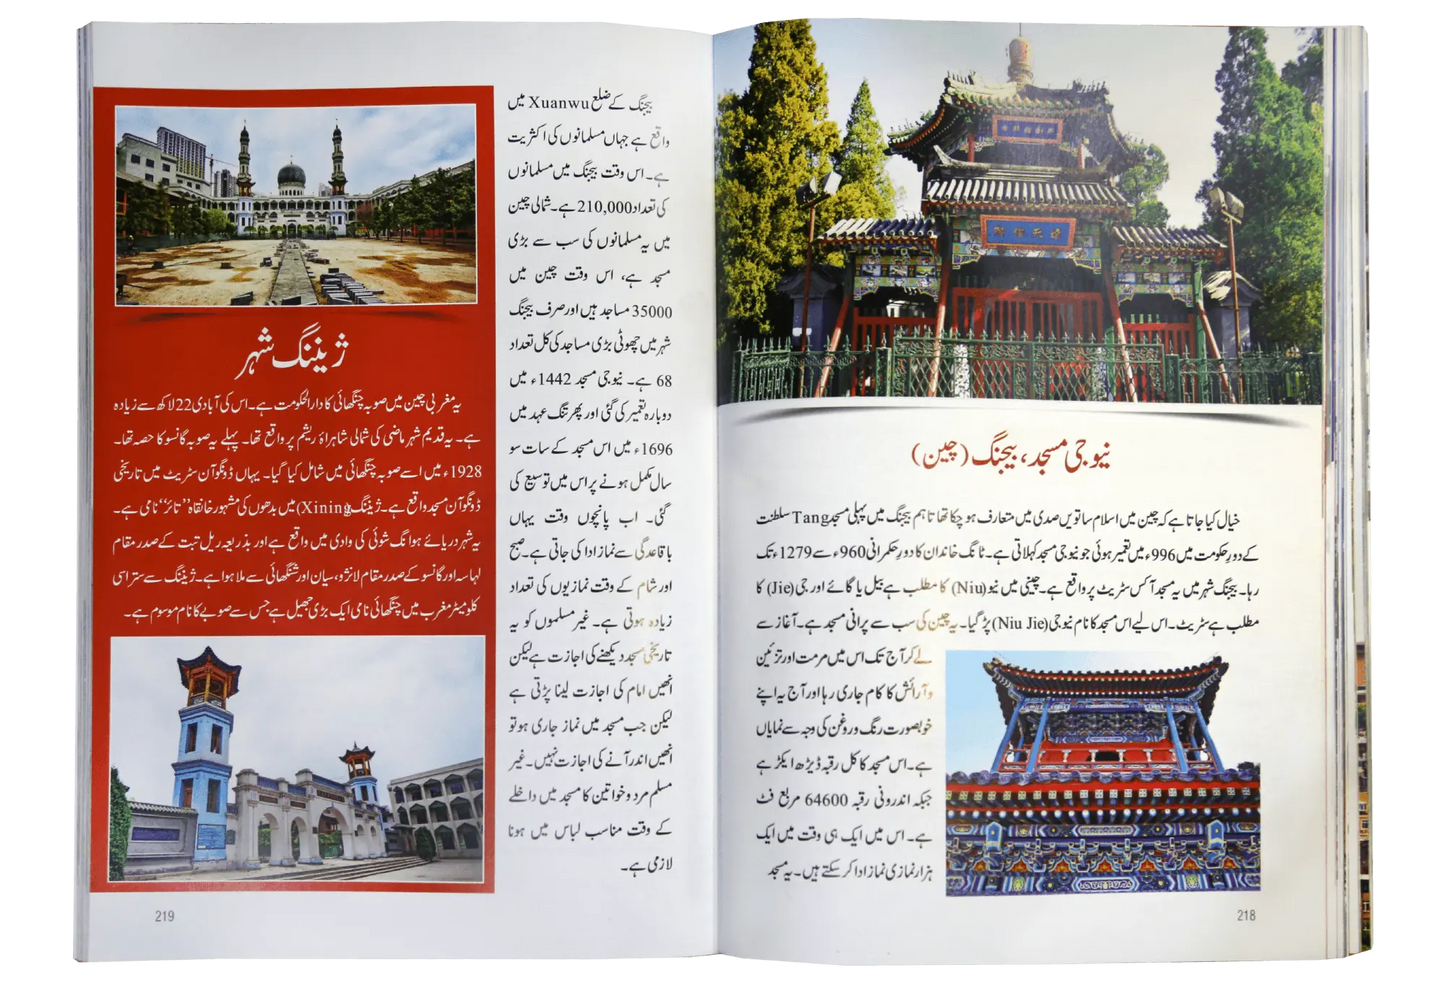 نیوجی مسجد، بیجنگ (چین)
خیال کیا جاتا ہے کہ چین میں اسلام ساتویں صدی میں متعارف ہو چکا تھا تاہم بیجنگ میں پہلی مسجد Tang سلطنت
کے دورِ حکومت میں 996ء میں تعمیر ہوئی جو نیوجی مسجد کہلاتی ہے۔ ٹانگ خاندان کا دورِ حکمرانی 960ء سے 1279ء تک
رہا۔ بیجنگ شہر میں یہ مسجد آکس سٹریٹ پر واقع ہے۔ چینی میں نیو (Niu) کا مطلب ہے بیل یا گائے اور جی (Jie) کا
مطلب ہے سٹریٹ۔ اس لیے اس مسجد کا نام نیوجی (Niu Jie) پڑ گیا۔ یہ چین کی سب سے پرانی مسجد ہے۔ آغاز سے
لے کر آج تک اس میں مرمت اور تزئین
و آرائش کا کام جاری رہا اور آج یہ اپنے
خوبصورت رنگ و روغن کی وجہ سے نمایاں
ہے۔ اس مسجد کا کل رقبہ ڈیڑھ ایکڑ ہے
جبکہ اندرونی رقبہ 64600 مربع فٹ
ہے۔ اس میں ایک ہی وقت میں ایک
ہزار نمازی نماز ادا کر سکتے ہیں۔ یہ مسجد
218
بیجنگ کے ضلع Xuanwu میں
واقع ہے جہاں مسلمانوں کی اکثریت
ہے۔ اس وقت بیجنگ میں مسلمانوں
کی تعداد 210,000 ہے۔ شمالی چین
میں یہ مسلمانوں کی سب سے بڑی
مسجد ہے، اس وقت چین میں
35000 مساجد ہیں اور صرف بیجنگ
شہر میں چھوٹی بڑی مساجد کی کل تعداد
68 ہے۔ نیوجی مسجد 1442ء میں
دوبارہ تعمیر کی گئی اور پھر تنگ عہد میں
1696ء میں اس مسجد کے سات سو
سال مکمل ہونے پر اس میں توسیع کی
گئی۔ اب پانچوں وقت یہاں
باقاعدگی سے نماز ادا کی جاتی ہے۔ صبح
اور شام کے وقت نمازیوں کی تعداد
زیادہ ہوتی ہے۔ غیر مسلموں کو یہ
تاریخی مسجد دیکھنے کی اجازت ہے لیکن
انھیں امام کی اجازت لینا پڑتی ہے
لیکن جب مسجد میں نماز جاری ہو تو
انھیں اندر آنے کی اجازت نہیں۔ غیر
مسلم مرد و خواتین کا مسجد میں داخلے
کے وقت مناسب لباس میں ہونا
لازمی ہے۔
ژیننگ شہر
یہ مغربی چین میں صوبہ چنگھائی کا دارالحکومت ہے۔ اس کی آبادی 22 لاکھ سے زیادہ
ہے۔ یہ قدیم شہر ماضی کی شمالی شاہراۂ ریشم پر واقع تھا۔ پہلے یہ صوبہ گانسو کا حصہ تھا۔
1928ء میں اسے صوبہ چنگھائی میں شامل کیا گیا۔ یہاں ڈونگوآن سٹریٹ میں تاریخی
ڈونگوآن مسجد واقع ہے۔ ژیننگ (Xining) میں بدھوں کی مشہور خانقاہ ”تائز“ نامی ہے۔
یہ شہر دریائے ہوانگ شوئی کی وادی میں واقع ہے اور بذریعہ ریل تبت کے صدر مقام
لہاسہ اور گانسو کے صدر مقام لانژو، سیان اور شنگھائی سے ملا ہوا ہے۔ ژیننگ سے ستر اسی
کلومیٹر مغرب میں چنگھائی نامی ایک بڑی جھیل ہے جس سے صوبے کا نام موسوم ہے۔
219